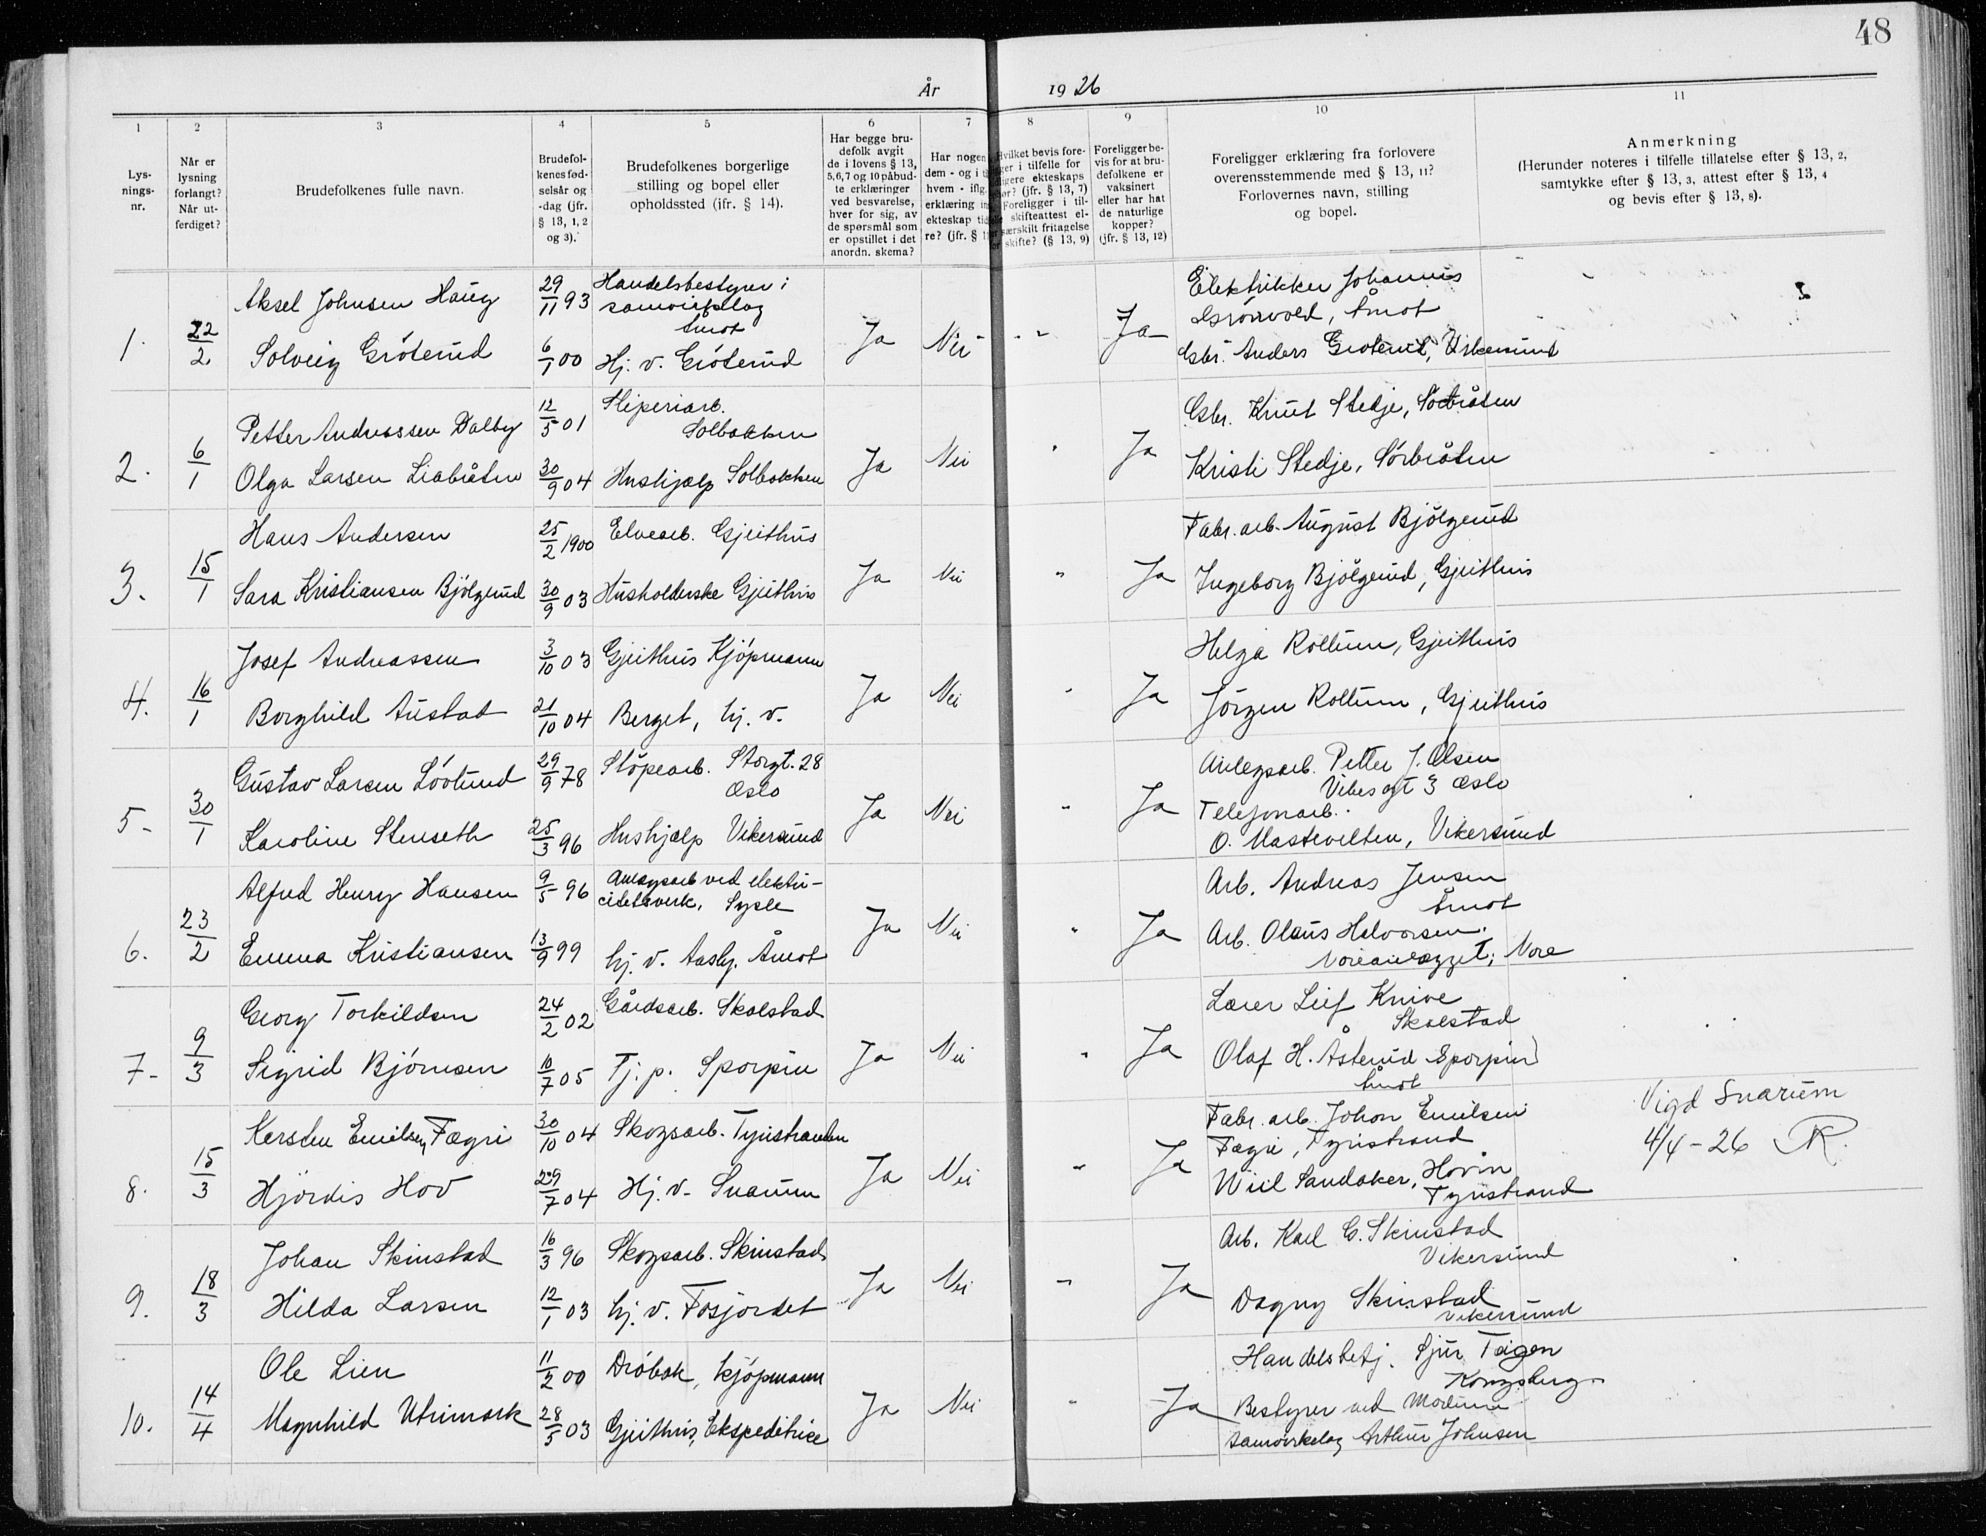 48
År 1926
1 2 3 4 5 6 7 8 9 10 11
Lys-
nings-
nr.
Når er
lysning
forlangt?
Når ut-
ferdiget?
Brudefolkenes fulle navn.
Brudefol-
kenes fød-
selsår og
-dag (jfr.
§ 13, 1, 2
og 3).
Brudefolkenes borgerlige
stilling og bopel eller
opholdssted (jfr. § 14).
Har begge bru-
defolk avgit
de i lovens § 13,
5,6,7 og 10 påbud-
te erklæringer
ved besvarelse,
hver for sig, av
de spørsmål som
er opstillet i det
anordn. skema?
Har nogen
dem - og i
hvem - iflg.
erklæring
ekteskap
re? (jfr. §
Hvilket bevis fore-
i tilfelle for
ekteskaps
(jfr. § 13, 7)
Foreligger i til-
skifteattest el-
særskilt fritagelse
skifte? (§ 13, 9)
Foreligger be-
vis for at bru-
defolkene er
vaksinert
eller har hat
de naturlige
kopper?
(jfr. § 13, 12)
Foreligger erklæring fra forlovere
overensstemmende med § 13, 11?
Forlovernes navn, stilling
og bopel.
Anmerkning
(Herunder noteres i tilfelle tillatelse efter § 13, 2,
samtykke efter § 13, 3, attest efter § 13, 4
og bevis efter § 13, 8).
1. 22/2 Aksel Johnsen Haug 29/11 93 Handelsbestyrer i
samvirkelag
Åmot
Solveig Gróterud 6/1 00 Hj. v. Gróterud Ja Nei " Ja
Elektrikker Johannes
Grönvold, Åmot
Gbr. Anders Groterud, Vikersund
2. 6/1 Petter Andreassen Dalby 12/5 01 Sliperiarb.
Solbakken
Olga Larsen Liabråten 30/9 04 Hushjælp Solbakken Ja Nei " Ja
Gbr. Knut Stedje, Sörbråten
Kristi Stedje, Sörbråten
3. 15/1 Hans Andersen 25/2 1900 Elvearb. Gjeithus
Sara Kristiansen Bjölgerud 30/9 03 Husholderske Gjeithus Ja Nei " Ja
Fabr. arb. August Bjölgerud
Ingeborg Bjölgerud, Gjeithus
4. 16/1 Josef Andreassen 3/10 03 Gjeithus Kjöpmann
Borghild Austad 21/10 04 Berget, hj. v. Ja Nei " Ja
Helga Rollum, Gjeithus
Jörgen Rollum, Gjeithus
5- 30/1 Gustav Larsen Lövlund 29/9 78 Stöpearb. Storgt. 28
Oslo
Karoline Stenseth 25/3 96 Hushjælp Vikersund Ja Nei " Ja
Anlegsarb. Petter J. Olsen
Vibes gt 3 Oslo
Telefonarb.
O. Mastevilten, Vikersund
6. 23/2 Alfred Henry Hansen 9/5 96 Anlegsarb ved elektri-
citetsverk, Sysle
Emma Kristiansen 13/9 99 hj. v. Aasby. Åmot Ja Nei " Ja
Arb. Andreas Jensen
Åmot
Arb. Olaus Halvorsen.
Noreanlægget, Nore
7- 9/3 Georg Torkildsen 24/2 02 Gårdsarb. Skalstad
Sigrid Björnsen 10/7 05 Tj. p. Sporpin Ja Nei " Ja
Lærer Leif Knive
Skalstad
Olaf H. Åsterud Sporpin
Åmot
8. 15/3 Kersten Emilsen Fægri 30/10 04 Skogsarb. Tyristranden
Hjördis Hov 29/7 04 Hj. v- Snarum Ja Nei " Ja
Fabr. arb. Johan Emilsen
Fægri, Tyristrand
Wiil Sandaker, Hovin
Tyristrand
Vigd Snarum
4/4 - 26 R.
9. 18/3 Johan Skinstad 16/3 96 Skogsarb. Skinstad
Hilda Larsen 12/1 03 hj. v. Fosjordet Ja Nei " Ja
Arb. Karl G. Skinstad
Vikersund
Dagny Skinstad
Vikersund
10. 14/4 Ole Lien 11/2 00 Dröbak, kjöpmann
Magnhild Utrimark 28/5 03 Gjeithus, Ekspeditrice Ja Nei " Ja
Handelsbetj. Sjur Teigen
Kongsberg
Bestyrer ved Modum
samvirkelag Arthur Johnsen